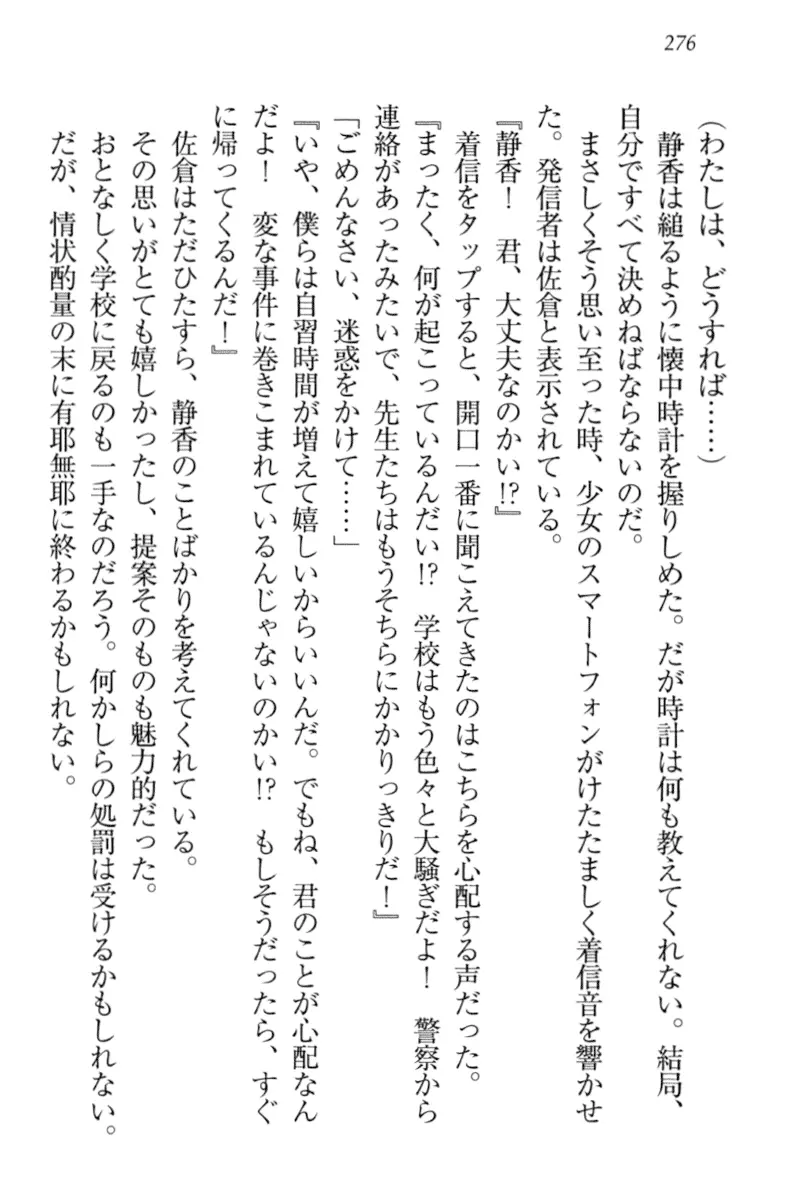 276
（わたしは、どうすれば……）
　静香は縋るように懐中時計を握りしめた。だが時計は何も教えてくれない。結局、
自分ですべて決めねばならないのだ。
　まさしくそう思い至った時、少女のスマートフォンがけたたましく着信音を響かせ
た。発信者は佐倉と表示されている。
『静香！　君、大丈夫なのかい!?』
　着信をタップすると、開口一番に聞こえてきたのはこちらを心配する声だった。
『まったく、何が起こっているんだい!?　学校はもう色々と大騒ぎだよ！　警察から
連絡があったみたいで、先生たちはもうそちらにかかりっきりだ！』
「ごめんなさい、迷惑をかけて……」
『いや、僕らは自習時間が増えて嬉しいからいいんだ。でもね、君のことが心配なん
だよ！　変な事件に巻きこまれているんじゃないのかい!?　もしそうだったら、すぐ
に帰ってくるんだ！』
　佐倉はただひたすら、静香のことばかりを考えてくれている。
　その思いがとても嬉しかったし、提案そのものも魅力的だった。
　おとなしく学校に戻るのも一手なのだろう。何かしらの処罰は受けるかもしれない。
だが、情状酌量の末に有耶無耶に終わるかもしれない。